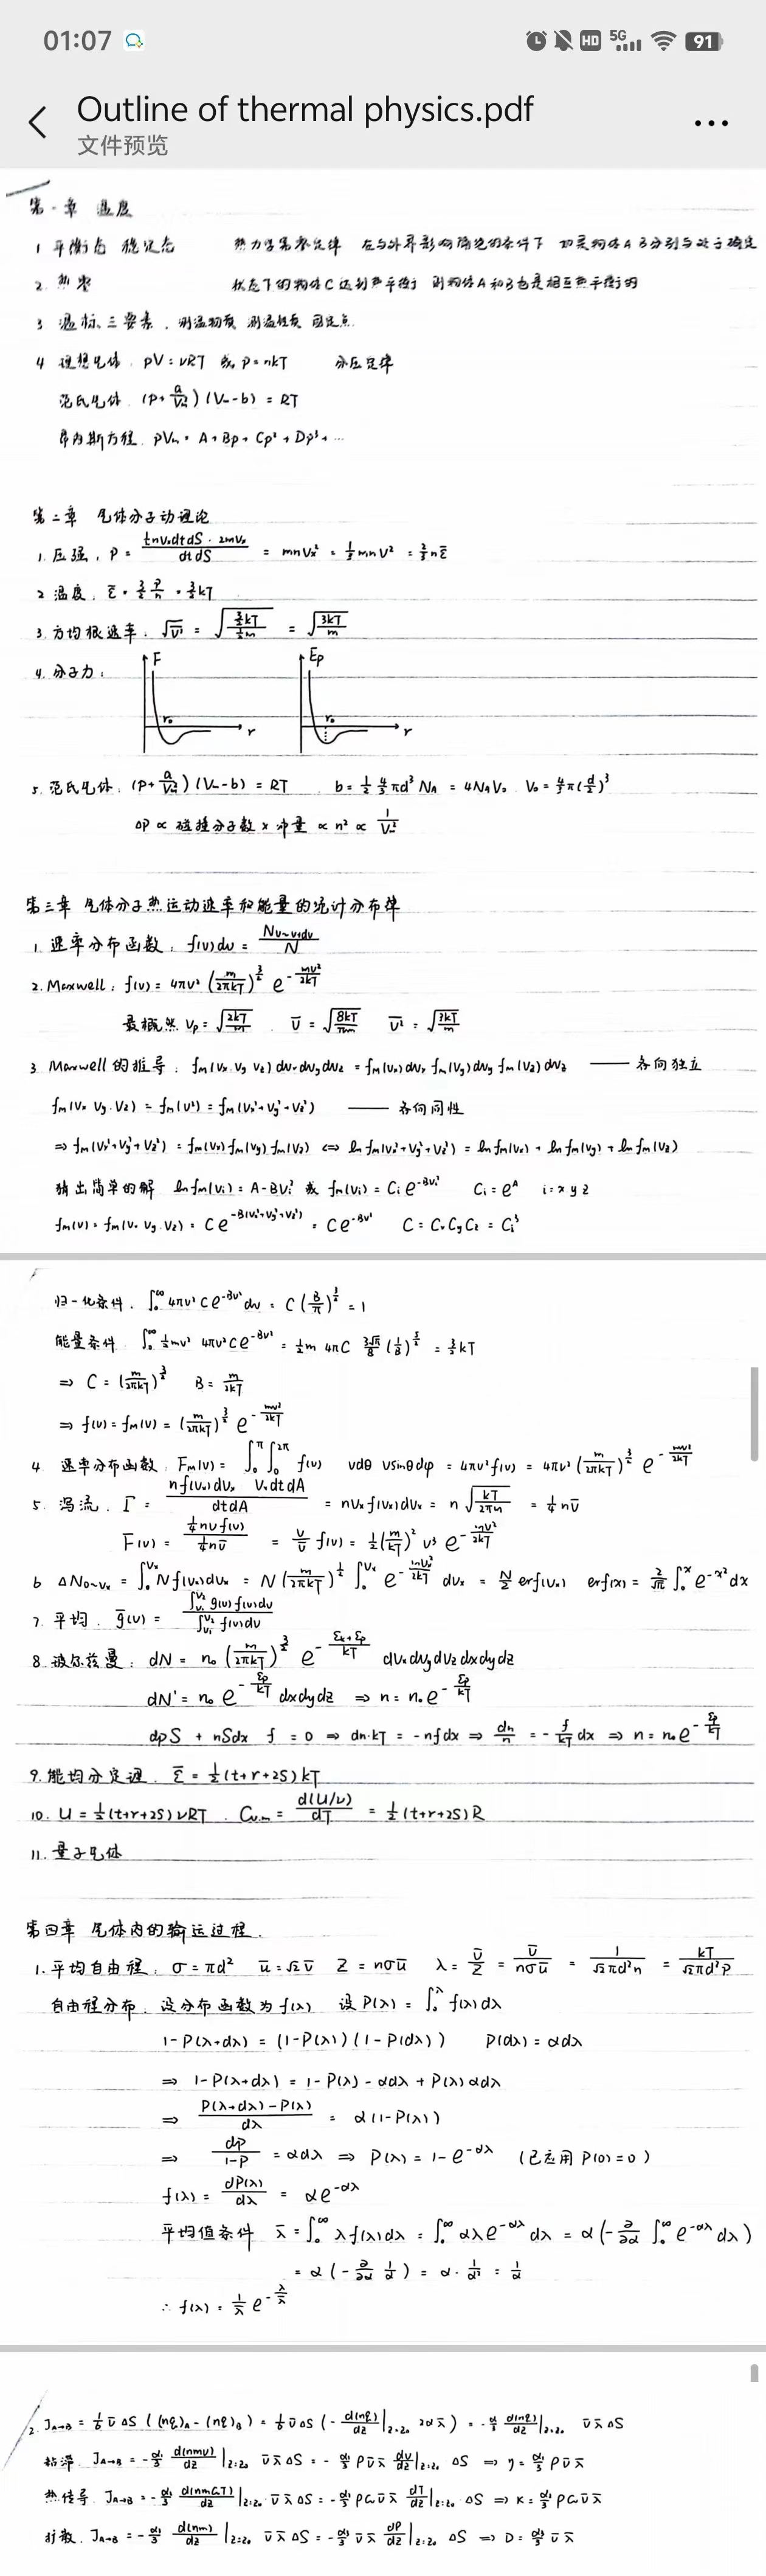 01:07
HD 5G 91
Outline of thermal physics.pdf
文件预览
第一章 温度
1 平衡态 稳定态 热力学第零定律 在与外界影响隔绝的条件下 如果物体A B分别与处于确定
2. 热 状态下的物体C达到热平衡 则物体A和B也是相互热平衡的
3 温标三要素. 测温物质 测温性质 固定点
4 理想气体. pV=νRT 或 p=nkT 分压定律
范氏气体 (P+a/Vm²)(Vm-b)=RT
昂内斯方程. pVm=A+Bp+Cp²+Dp³+…
第二章 气体分子动理论
1. 压强, P = ½nVxdtdS·2mVx / dtdS = mnVx² = ⅓mnV² = ⅔nε̄
2 温度. ε̄ = 3/2 P/n = 3/2 kT
3. 方均根速率. √v̄² = √(3/2kT / ½m) = √(3kT/m)
4. 分子力: F r₀ r Ep r₀ r
5. 范氏气体. (P+a/Vm²)(Vm-b)=RT b=½ 4/3 πd³ NA = 4NAV₀ V₀=4/3 π(d/2)³
ΔP ∝ 碰撞分子数 × 冲量 ∝ n² ∝ 1/Vm²
第三章 气体分子热运动速率和能量的统计分布律
1. 速率分布函数, f(v)dv = Nv~v+dv / N
2. Maxwell: f(v)=4πv² (m/2πkT)^(3/2) e^(-mv²/2kT)
最概然 Vp=√(2kT/m) . v̄=√(8kT/πm) v̄²=√(3kT/m)
3. Maxwell的推导: fm(Vx Vy Vz)dVxdVydVz = fm(Vx)dVx fm(Vy)dVy fm(Vz)dVz —— 各向独立
fm(Vx Vy Vz) = fm(V²) = fm(Vx²+Vy²+Vz²) —— 各向同性
⇒ fm(Vx²+Vy²+Vz²) = fm(Vx)fm(Vy)fm(Vz) ⇔ ln fm(Vx²+Vy²+Vz²) = ln fm(Vx) + ln fm(Vy) + ln fm(Vz)
猜出简单的解 ln fm(Vi)=A-BVi² 或 fm(Vi)=Ci e^(-BVi²) Ci=e^A i=x y z
fm(v)=fm(Vx Vy Vz)=Ce^(-B(Vx²+Vy²+Vz²)) = Ce^(-Bv²) C=CxCyCz=Ci³
归一化条件. ∫₀^∞ 4πv²Ce^(-Bv²)dv = C(B/π)^(3/2) = 1
能量条件. ∫₀^∞ ½mv² 4πv²Ce^(-Bv²) = ½m 4πC 3√π/8 (1/B)^(5/2) = 3/2 kT
⇒ C=(m/2πkT)^(3/2) B=m/2kT
⇒ f(v)=fm(v)=(m/2πkT)^(3/2) e^(-mv²/2kT)
4. 速率分布函数. Fm(v)=∫₀^π∫₀^2π f(v) vdθ vsinθdφ = 4πv²f(v) = 4πv²(m/2πkT)^(3/2) e^(-mv²/2kT)
5. 泻流. Γ = nf(Vx)dVx VxdtdA / dtdA = nVxf(Vx)dVx = n√(kT/2πm) = ¼nv̄
F(v) = ¼nvf(v) / ¼nv̄ = v/v̄ f(v) = ½(m/kT)² v³ e^(-mv²/2kT)
6 ΔN0~Vx = ∫₀^Vx Nf(Vx)dVx = N(m/2πkT)^(1/2) ∫₀^Vx e^(-mVx²/2kT) dVx = N/2 erf(Vx) erf(x)=2/√π ∫₀^x e^(-x²)dx
7. 平均. ḡ(v) = ∫v₁^v₂ g(v)f(v)dv / ∫v₁^v₂ f(v)dv
8. 波尔兹曼: dN = n₀(m/2πkT)^(3/2) e^(-(εk+εp)/kT) dVxdVydVzdxdydz
dN' = n₀ e^(-εp/kT) dxdydz ⇒ n=n₀e^(-εp/kT)
dpS + nSdx f = 0 ⇒ dn·kT=-nfdx ⇒ dn/n = -f/kT dx ⇒ n=n₀e^(-εp/kT)
9. 能均分定理. ε̄=½(t+r+2s)kT
10. U=½(t+r+2s)νRT . Cv,m = d(U/ν)/dT = ½(t+r+2s)R
11. 量子气体
第四章 气体内的输运过程.
1. 平均自由程. σ=πd² ū=√2v̄ Z=nσū λ=v̄/Z = v̄/nσū = 1/√2πd²n = kT/√2πd²P
自由程分布. 设分布函数为f(λ) 设P(λ)=∫₀^λ f(λ)dλ
1-P(λ+dλ)=(1-P(λ))(1-P(dλ)) P(dλ)=αdλ
⇒ 1-P(λ+dλ)=1-P(λ)-αdλ+P(λ)αdλ
⇒ P(λ+dλ)-P(λ) / dλ = α(1-P(λ))
⇒ dp/1-P = αdλ ⇒ P(λ)=1-e^(-αλ) (已应用P(0)=0)
f(λ)=dP(λ)/dλ = αe^(-αλ)
平均值条件 λ̄=∫₀^∞ λf(λ)dλ=∫₀^∞ αλe^(-αλ)dλ=α(-∂/∂α ∫₀^∞ e^(-αλ)dλ)
=α(-∂/∂α 1/α)=α·1/α²=1/α
∴ f(λ)=1/λ̄ e^(-λ/λ̄)
2. JA→B = 1/6 v̄ΔS((nq)A-(nq)B) = 1/6 v̄ΔS(-d(nq)/dz|z=z₀ 2αλ̄) = -α/3 d(nq)/dz|z=z₀ v̄λ̄ΔS
粘滞. JA→B = -α₁/3 d(nmu)/dz|z=z₀ v̄λ̄ΔS = -α₁/3 ρv̄λ̄ du/dz|z=z₀ ΔS ⇒ η=α₁/3 ρv̄λ̄
热传导. JA→B = -α₂/3 d(nmCvT)/dz|z=z₀ v̄λ̄ΔS = -α₂/3 ρCvv̄λ̄ dT/dz|z=z₀ ΔS ⇒ κ=α₂/3 ρCvv̄λ̄
扩散. JA→B = -α₃/3 d(nm)/dz|z=z₀ v̄λ̄ΔS = -α₃/3 v̄λ̄ dρ/dz|z=z₀ ΔS ⇒ D=α₃/3 v̄λ̄